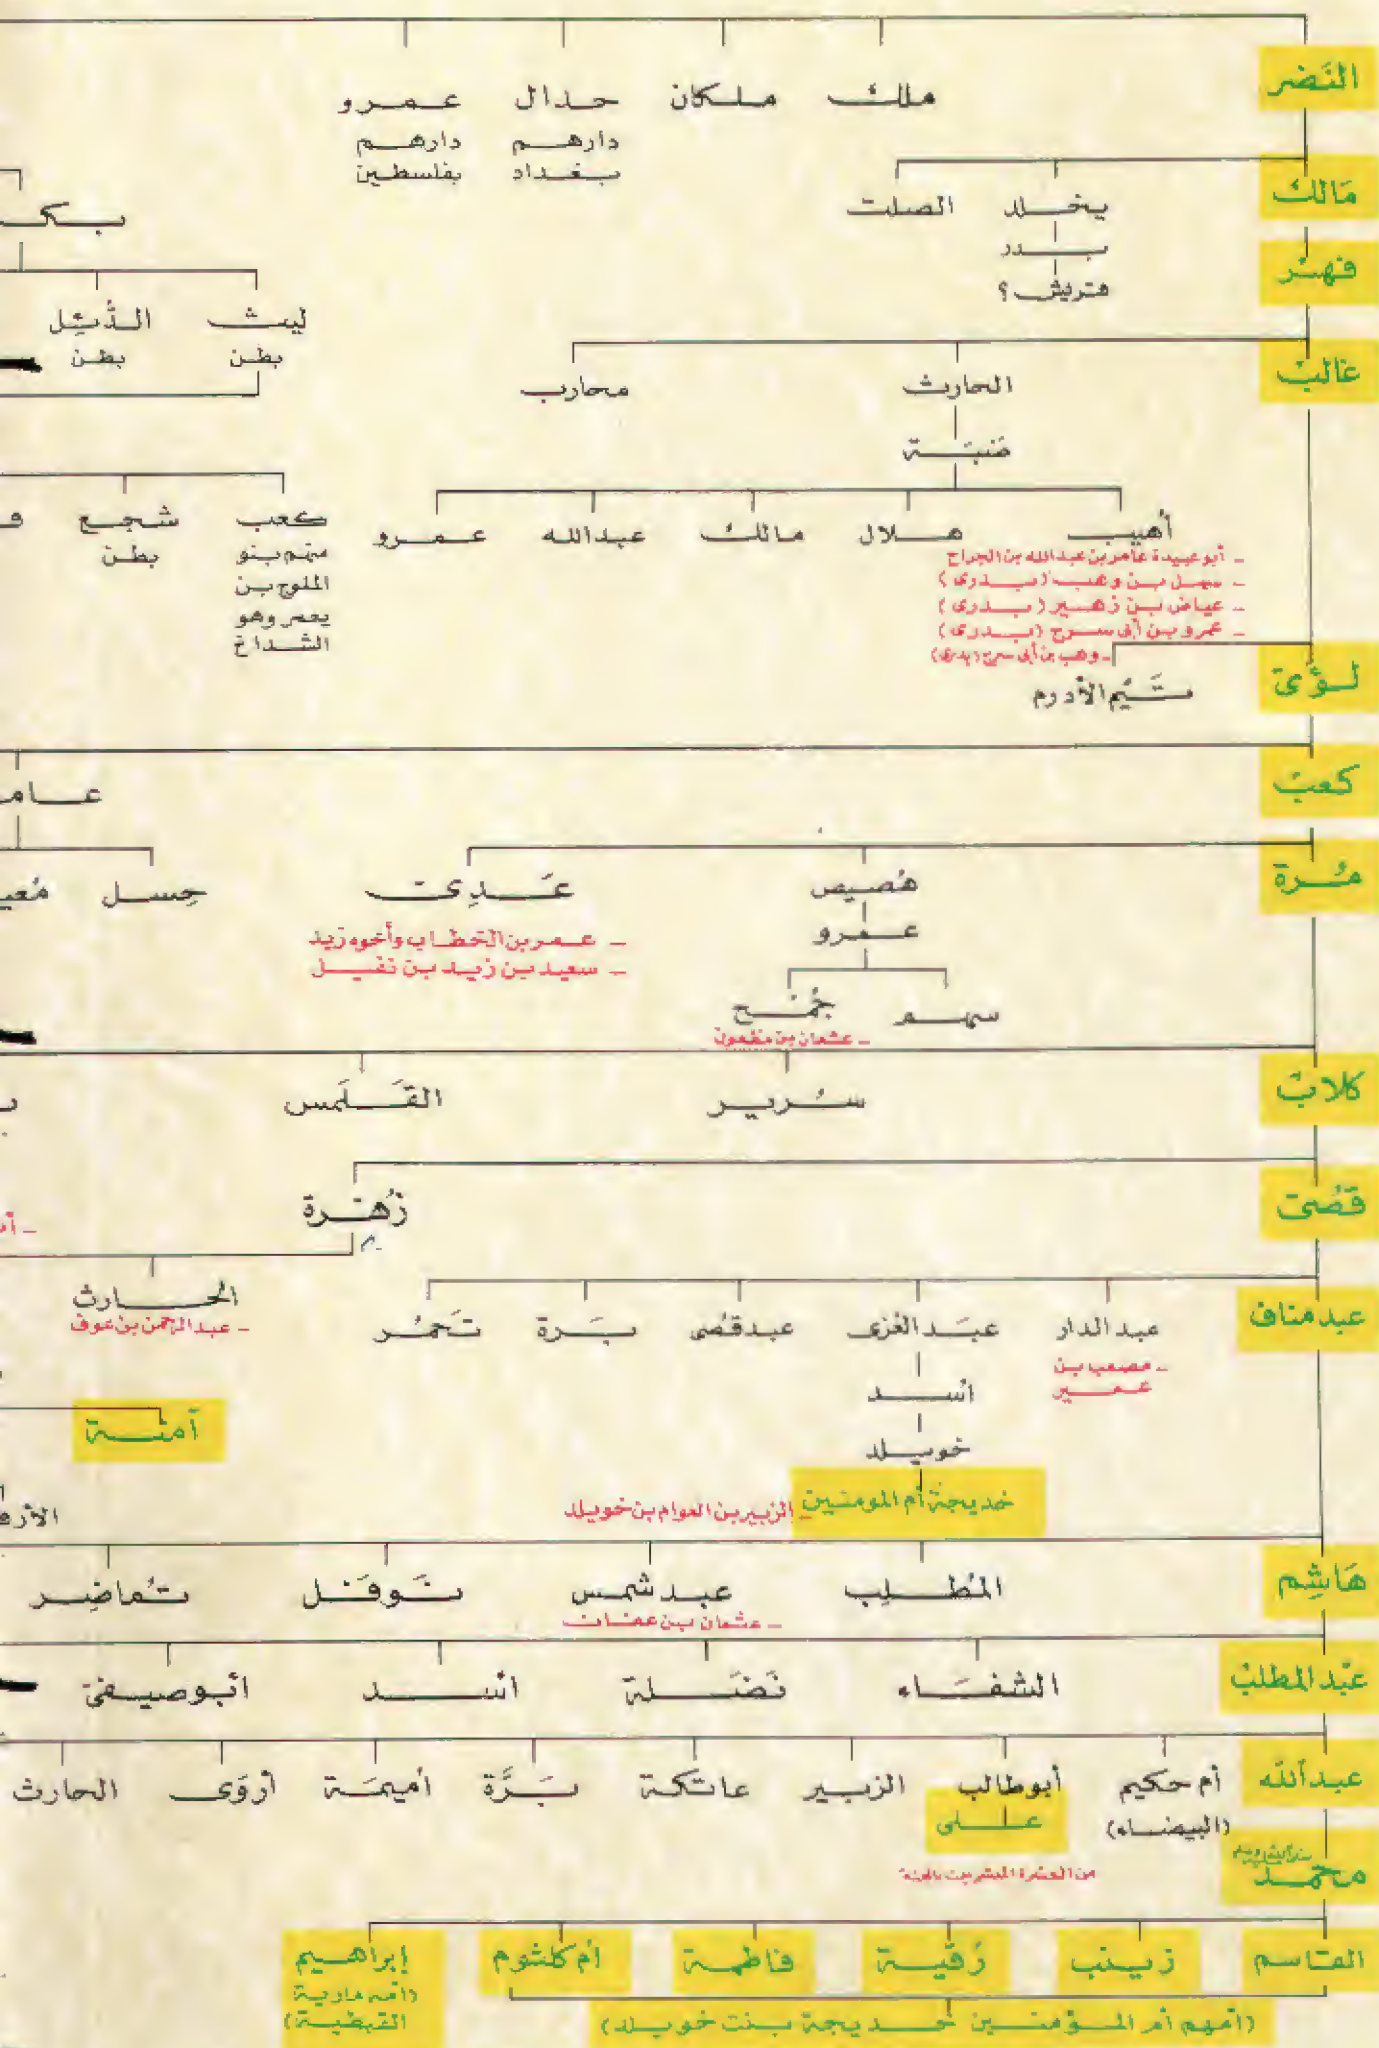 النَضر
ملك
ملكان
حدال
عمرو
دارهم
بغداد
دارهم
بفلسطين
مَالك
يخلد
الصلت
بدر
قريش؟
فهْر
بكـ
ليث
بطن
الدُّئِل
بطن
غالبْ
الحارث
محارب
ضَبَّة
أهيب
هلال
مالك
عبدالله
عمرو
كعب
منهم بنو
الملوح بن
يعمر وهو
الشداخ
شجع
بطن
– أبو عبيدة عامر بن عبدالله بن الجراح
– سهل بن وهب (بدرى)
– عياض بن زهير (بدرى)
– عمرو بن أبى سرح (بدرى)
– وهب بن أبى سرح (بدرى)
لؤَّى
تَيْم الأدرم
كعبْ
عامـ
مُرة
هُصيص
عَدِى
حِسل
مُعيـ
عمرو
– عمر بن الخطاب وأخوه زيد
– سعيد بن زيد بن نفيل
سهم
جُمَح
– عثمان بن مظعون
كلابْ
سُرير
القَلَمس
قصُى
زُهرة
الحارث
– عبدالرحمن بن عوف
عبد مناف
عبد الدار
عبَد العُزى
عبد قصُى
بَرة
تَخمُر
– مصعب بن
عمير
أسد
خويلد
خديجة أم المومنين
– الزبير بن العوام بن خويلد
آمنة
الأرقـ
هَاشِم
المُطلِب
عبد شمس
نَوفَل
تُماضِر
– عثمان بن عفان
عبْد المطلبْ
الشفَاء
نَضَلة
أسد
أبو صيفى
عبد ٱلله
أم حكيم
(البيضاء)
أبو طالب
الزبير
عاتكة
بَرَّة
أميمَة
أروَى
الحارث
على
من العشرة المبشرين بالجنة
صلى الله عليه وسلم
محمد
القاسم
زينب
رُقية
فاطمة
أم كلثوم
إبراهيم
(أمه مارية
القبطية)
(أمهم أم المؤمنين خديجة بنت خويلد)